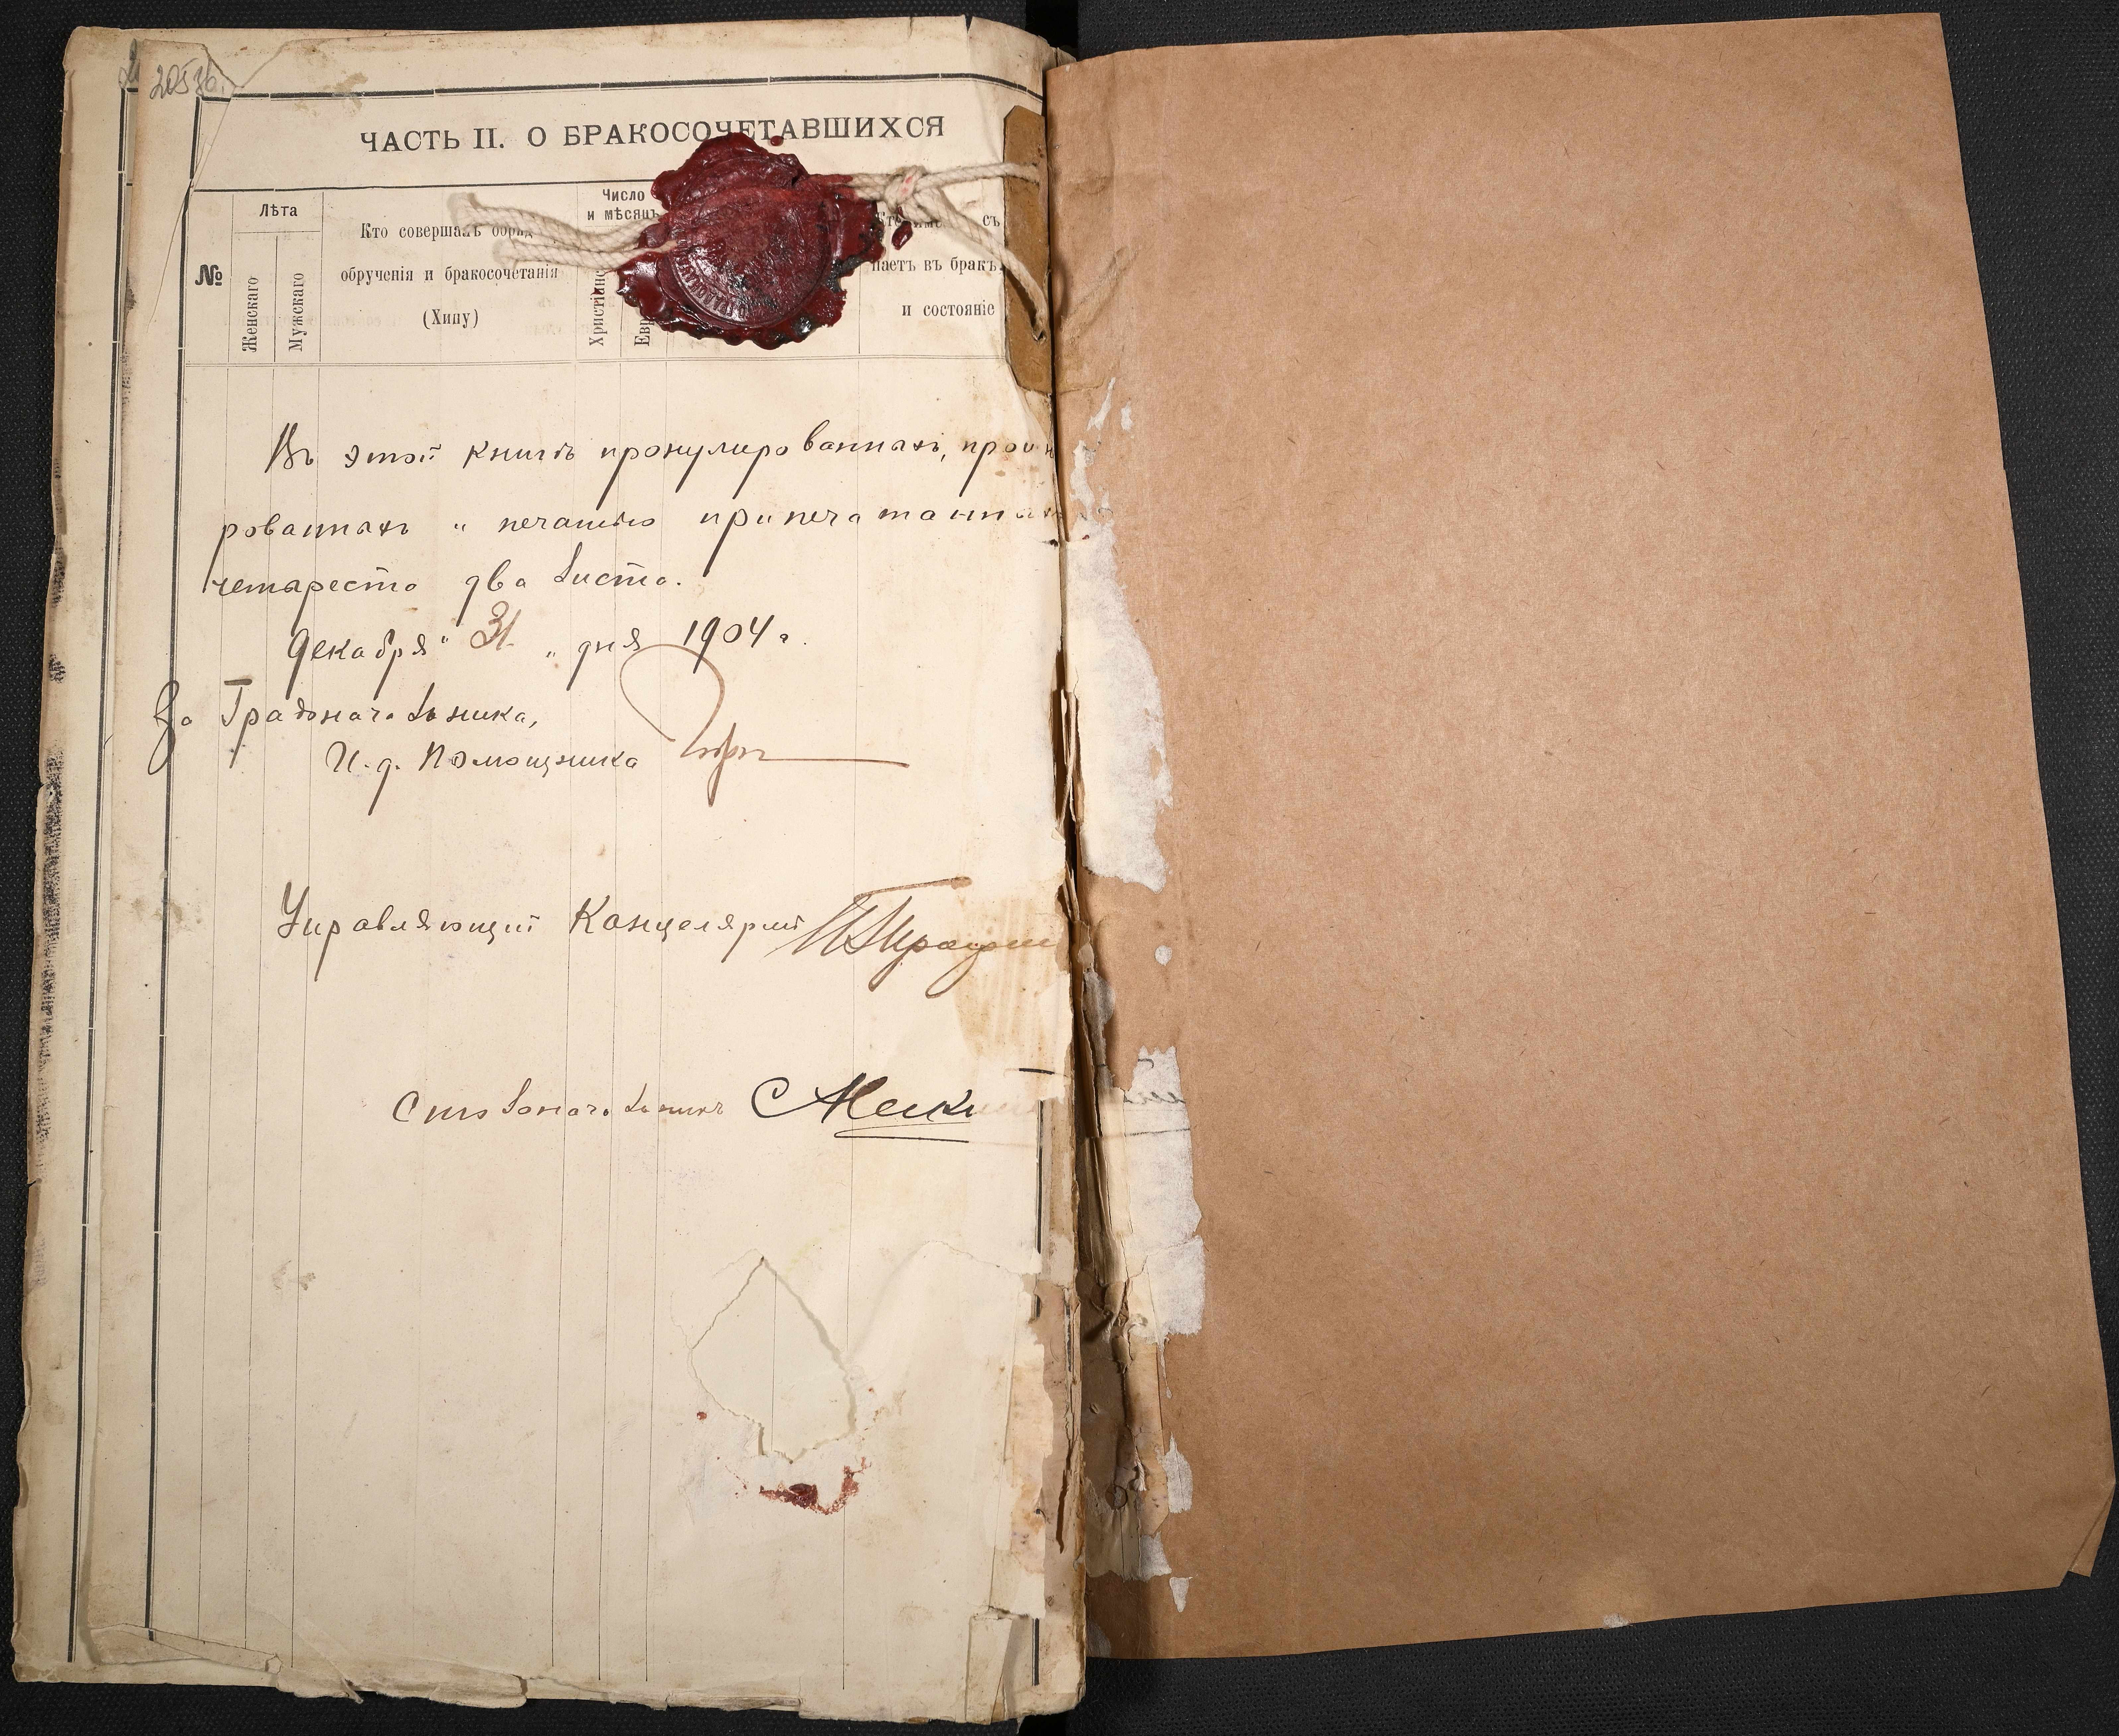 ЧАСТЬ II. О БРАКОСОЧЕТАВШИХСЯ
№
Лѣта
Женскаго
Мужскаго
Кто совершалъ обряд
обрученія и бракосочетанія
(Хипу)
Число
и мѣсяцъ
съ
паетъ въ бракъ
и состояніе
Въ этой книгѣ
рованныхъ и печатью припечатанных
четыреста два листа.
Декабря "31" дня 1904 г.
За Градоначальника,
И. д. Помощника
Управляющій Канцеляріей
Столоначальникъ